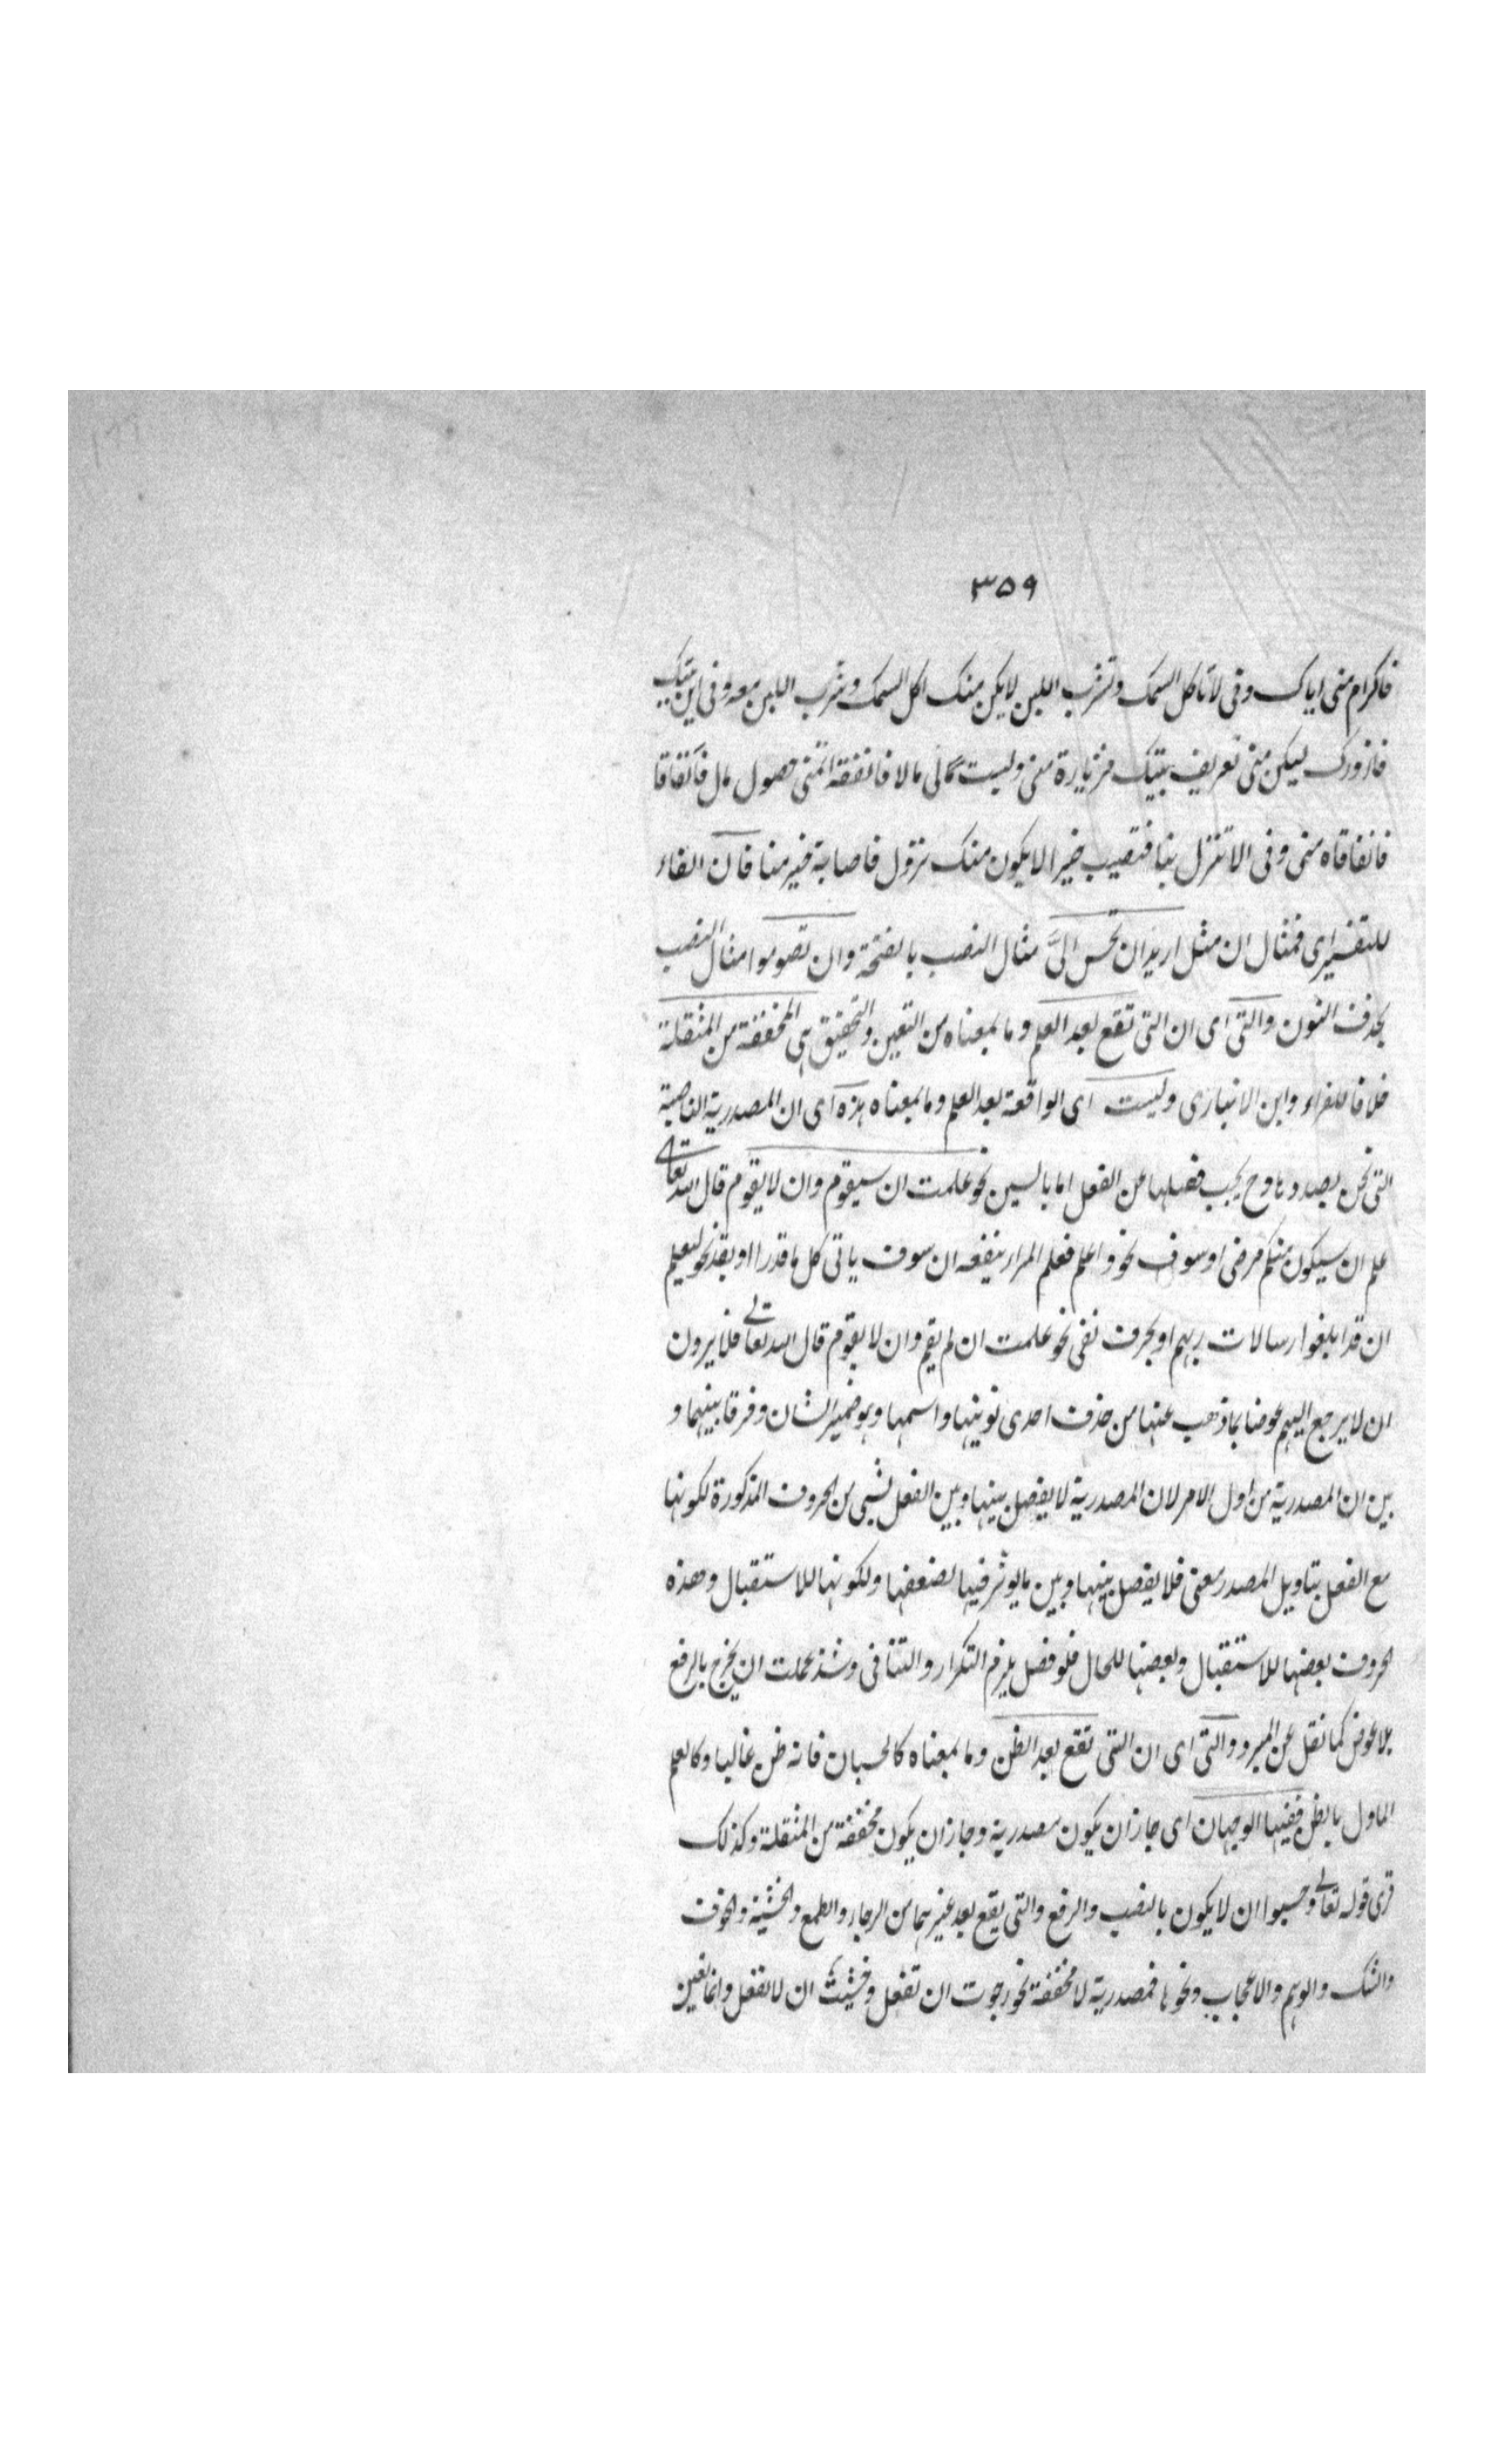 ۳۵۹
فاكرام منى اياك وفى لا تاكل السمك وتشرب اللبن لا يكن منك اكل السمك وشرب اللبن معه وفى اين بيتك
فازورك ليكن منى تعريف بيتك فزيارة منى وليست لى مالا فانفقه اتمنى حصول مال فانفاقا
فانفاقاه منى وفى الا تنزل بنا فتصيب خيرا الا يكون منك نزول فاصابة خير منا فان الفاء
للتفسير اى فمثال ان مثل اريد ان تحسن الىَّ مثال النصب بالفتحة وان تصوموا مثال النصب
بحذف النون والتى اى ان التى تقع بعد العلم وما بمعناه من التعين والتحقيق هى المخففة من المثقلة
خلافا للفراء وابن الانبارى وليست اى الواقعة بعد العلم وما بمعناه هذه اى ان المصدرية الناصبة
التى نحن بصددها وح يجب فصلها عن الفعل اما بالسين نحو علمت ان سيقوم وان لا يقوم قال الله تعالى
علم ان سيكون منكم مرضى او سوف نحو واعلم فعلم المرا ينفعه ان سوف ياتى كل ما قدرا او بقد نحو ليعلم
ان قد ابلغوا رسالات ربهم او بحرف نفى نحو علمت ان لم يقم وان لا يقوم قال الله تعالى فلا يرون
ان لا يرجع اليهم عوضا بما ذهب عنها من حذف احدى نونيها واسمها وهو ضمير الشان وفرقا بينهما و
بين ان المصدرية من اول الامر لان المصدرية لا يفصل بينها وبين الفعل بشيى من الحروف المذكورة لكونها
مع الفعل بتاويل المصدر معنى فلا يفصل بينها وبين ما يوثر فيها لضعفها ولكونها للاستقبال وهذه
الحروف بعضها للاستقبال وبعضها للحال فلو فصل يلزم التكرار والتنافى وشذ علمت ان يخرج بالرفع
بلا عوض كما نقل عن المبرد والتى اى ان التى تقع بعد الظن وما بمعناه كالحسبان فانه ظن غالبا وكالعلم
الماول بالظن ففيها الوجهان اى جاز ان يكون مصدرية وجاز ان يكون مخففة من المثقلة وكذلك
قرى قوله تعالى وحسبوا ان لا يكون بالنصب والرفع والتى يقع بعد غيرهما من الرجاء والطمع والخشية والخوف
والشك والوهم والاعجاب ونحوها فمصدرية لا مخففة نحو رجوت ان تفعل وخشيت ان لا تفعل وانما تعين